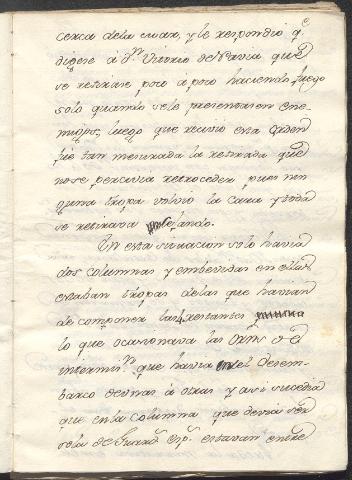 cerca dela cual, y le respondio q.e
digese á D.n Vitorio de Navia que
se retirase poco á poco haciendo fuego
solo quando selo presentasen ene-
migos, luego que recivio esta orden
fue tan mesurada la retirada que
nose percivia retroceder pues nin
guna tropa volvio la cara y toda
se retirava
En esta situacion solo havia
dos columnas y embevidas en ellas
estaban tropas delas que havian
de componer las 4 restantes
lo que ocasionava las
que havia en el desem-
barco de unas á otras y asi sucedia
que enla columna que devia ser
sola de Guard.s Esp.s estavan entre